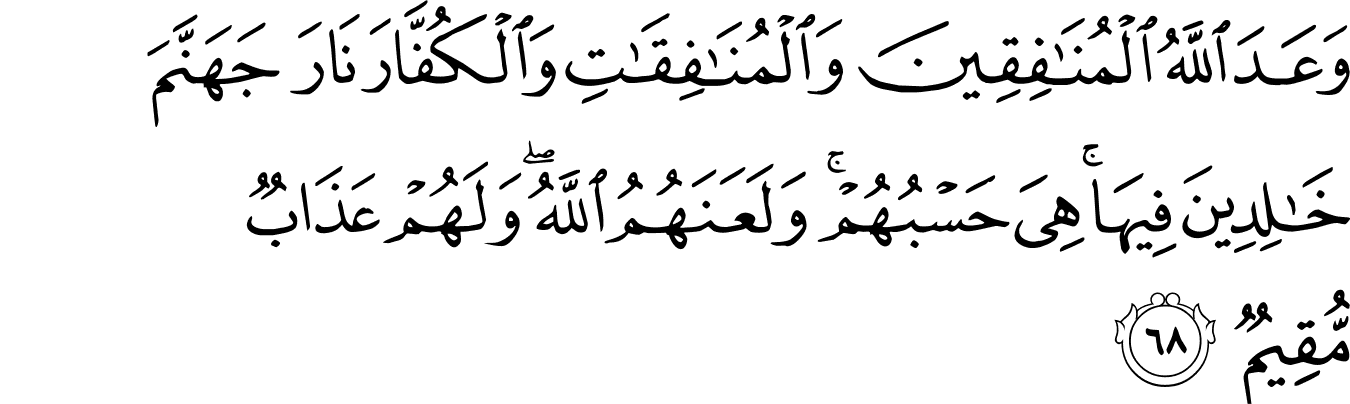 وَعَدَ ٱللَّهُ ٱلْمُنَٰفِقِينَ وَٱلْمُنَٰفِقَٰتِ وَٱلْكُفَّارَ نَارَ جَهَنَّمَ
خَٰلِدِينَ فِيهَا ۚ هِىَ حَسْبُهُمْ ۚ وَلَعَنَهُمُ ٱللَّهُ ۖ وَلَهُمْ عَذَابٌ
مُّقِيمٌ ٦٨